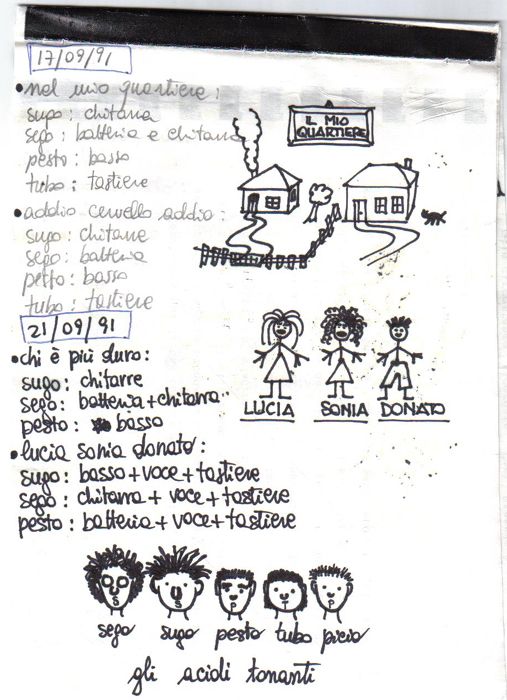 17/09/91
•nel mio quartiere:
sugo: chitarra
sego: batteria e chitarra
pesto: basso
tubo: tastiere
•addio cervello addio:
sugo: chitarre
sego: batteria
pesto: basso
tubo: tastiere
IL MIO
QUARTIERE
21/09/91
•chi è più duro:
sugo: chitarre
sego: batteria+chitarra
pesto: basso
•lucia sonia donato:
sugo: basso+voce+tastiere
sego: chitarra + voce + tastiere
pesto: batteria + voce + tastiere
LUCIA SONIA DONATO
sego sugo pesto tubo picio
gli acidi tonanti